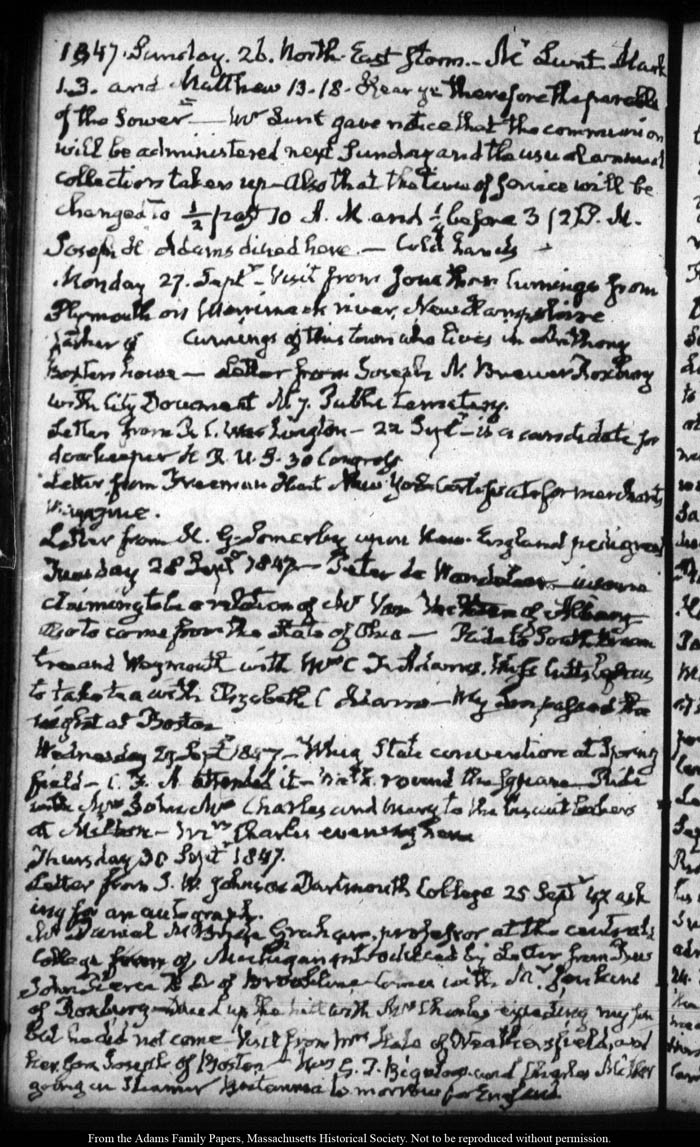 1847. Sunday. 26. North-East storm. Mr Lunt. Mark
1.3. and Matthew 13-18. Hear ye therefore the parable
of the Sower — Mr Lunt gave notice that the communion
will be administered next Sunday and the usual annual
collection taken up — Also that the time of service will be
changed to ½ past 10 A. M. and ¼ before 3 P. M.
Joseph H Adams dined here. —
Monday 27. Septr — Visit from Jonathan Cummings from
Plymouth on Merrimack river, New Hampshire
father of Cummings of this town who lives in Anthony
house — Letter from Joseph N. Brewer Roxbury
with City Document No 7. Public Cemetery.
Letter from R C. Washington — 22 Septr — is a candidate for
doorkeeper H. R. U. S. 30 Congress
Letter from Freeman Hunt New York for merchants
Letter from H. G. Somerby upon New England pedigrees
Tuesday 28 Septr 1847 — Peter
claiming to be a relation of Mr Van Vechten of Albany
to come from the State of Ohio — Ride to South Brain
tree and Weymouth with Mrs C F. Adams. left us
to take tea with Elizabeth C Adams — My Son passed the
night at Boston
Wednesday 29 Septr 1847 — Whig State convention at Spring
field — C. F. A attended it — Walk round the Square — Ride
with Mrs John, Mrs Charles and Mary to the biscuit bakers
at Milton — Mrs Charles evening here
Thursday 30 Septr 1847.
Letter from S. W. Johnson Dartmouth College 25 Septr 47 ask
ing for an autograph.
Mr Daniel McBride Graham, professor at the central
College of Michigan introduced by Letter from Revd
John Pierce D. D. of Brookline — comes with Mr Jenkins
of Roxburg — up the hill with Mrs Charles expecting my Son
but he did not come — Visit from Mrs Hale of Weathersfield, and
her Son Joseph of Boston — Mrs G. T. Bigelow and Charles
going in Steamer Britannia to morrow for England
From the Adams Family Papers, Massachusetts Historical Society. Not to be reproduced without permission.